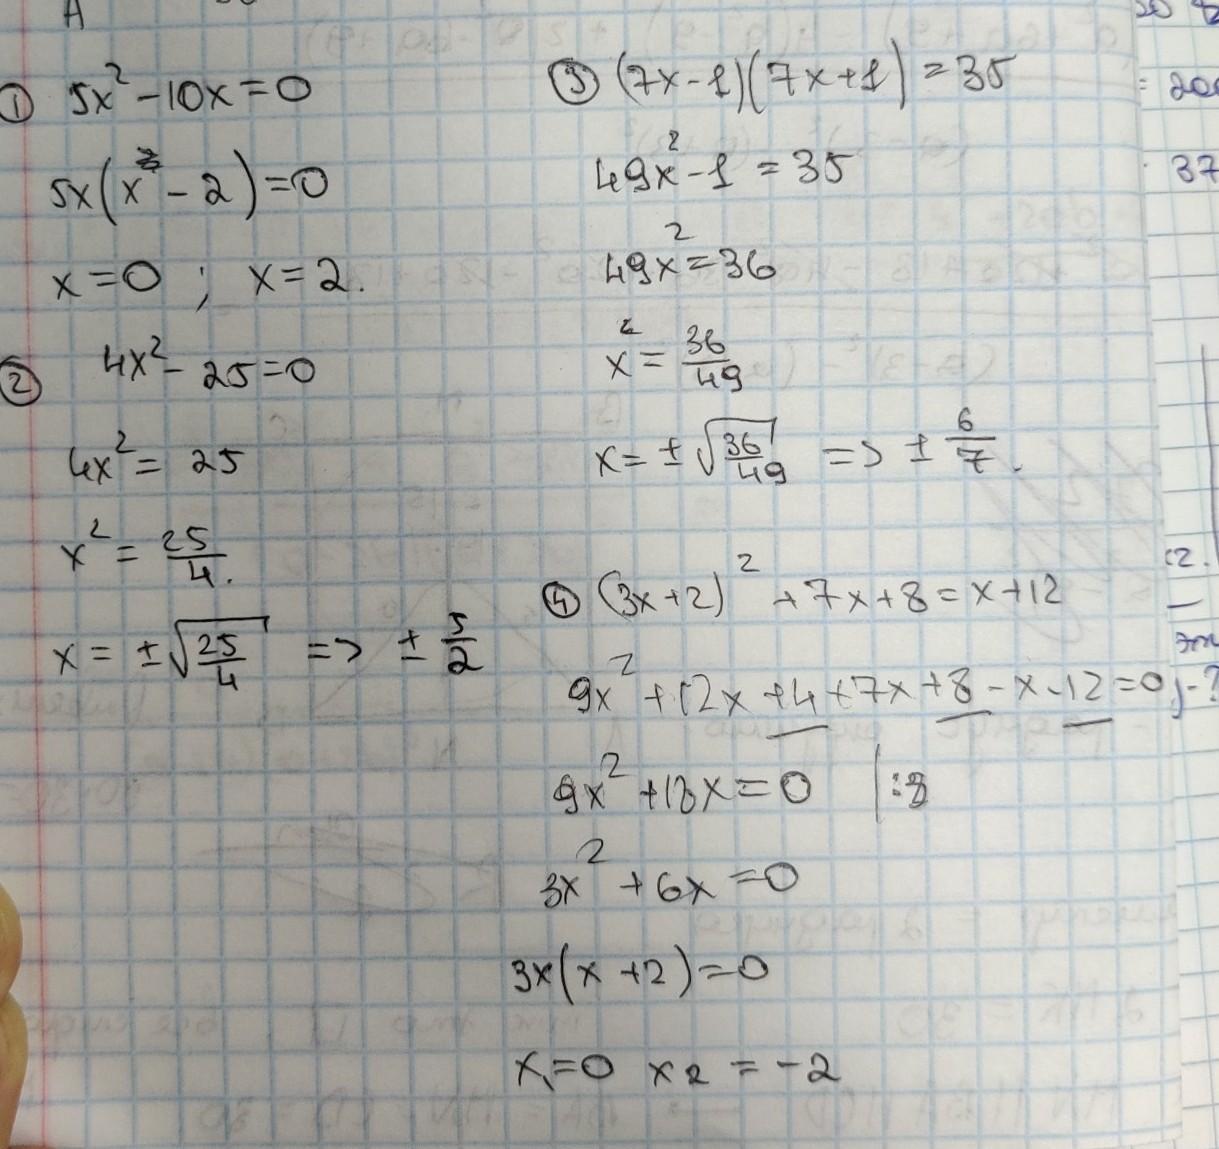 A
① 5x² - 10x = 0
5x(x - 2) = 0
x = 0 ; x = 2.
② 4x² - 25 = 0
4x² = 25
x² = 25/4.
x = ±√(25/4) => ± 5/2
③ (7x - 1)(7x + 1) = 35
49x² - 1 = 35
49x² = 36
x² = 36/49
x = ±√(36/49) => ± 6/7.
④ (3x + 2)² + 7x + 8 = x + 12
9x² + 12x + 4 + 7x + 8 - x - 12 = 0
9x² + 18x = 0 | :3
3x² + 6x = 0
3x(x + 2) = 0
x₁ = 0 x₂ = -2
= 200
37